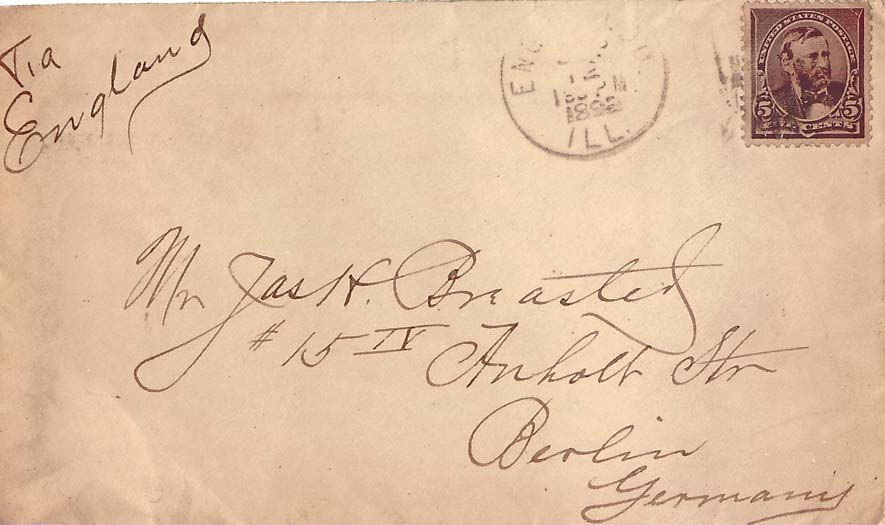 Via
England
ILL.
UNITED STATES POSTAGE
5 5
FIVE CENTS
Mr Jas H. Breasted
# 15 IV Anholt Str
Berlin
Germany